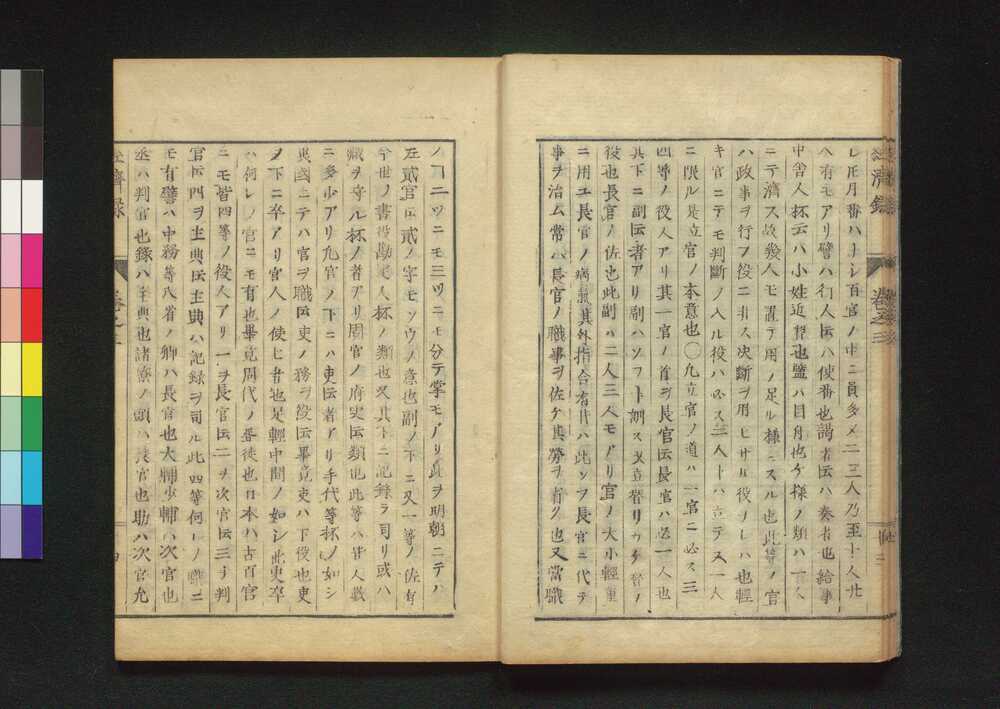 レ正月番ハナシ百官ノ中ニ員多メ二三人乃至十人廿
人有モアリ譬ハ行人伝ハ使番也謁者伝ハ奏者也給事
中舎人杯云ハ小姓近習也監ハ目付也ケ様ノ類ハ一人
ニテ済ス故幾人モ置テ用ノ足ル様ニスル也此等ノ官
ハ政事ヲ行フ役ニ非ス決断ヲ用ヒサル役ナレハ也軽
キ官ニテモ判断ノ入ル役ハ必ス三人トハ立テス一人
ニ限ル是立官ノ本意也〇凡立官ノ道ハ一官ニ必ス三
四等ノ役人アリ其一官ノ首ヲ長官伝長官ハ必一人也
其下ニ副伝者アリ副ハソフト訓ス
役也長官ノ佐也此副ハ二人三人モアリ官ノ大小軽重
ニ用ユ長官ノ病気其外指合有時ハ此ソフ長官ニ代テ
事ヲ治ム常ハ長官ノ職事ヲ佐ケ其労ヲ有ク也又当職
経済録
巻之三
ノ二ツニモ三ツニモ分テ掌モアリ是ヲ明朝ニテハ
左貳官伝貳ノ字モソウノ意也副ノ下ニ又一等ノ佐有
今世ノ書役勘定人杯ノ類也又其下ニ記録ヲ司リ或ハ
蔵ヲ守ル杯ノ者アリ周官ノ府史伝類也此等ハ皆人数
ニ多少アリ凡官ノ下ニハ吏伝者アリ手代等杯ノ如シ
異国ニテハ官ヲ職伝吏ノ務ヲ役伝畢竟吏ハ下役也吏
ヲ下ニ卒アリ官人ノ使ヒ者也足軽中間ノ如シ此吏卒
ハ何レノ官ニモ有也畢竟周代ノ胥徒也日本ハ古百官
ニモ皆四等ノ役人アリ一ヲ長官伝二ヲ次官伝三ヲ判
官伝四ヲ主典伝主典ハ記録ヲ司ル此四等何レノ職ニ
モ有譬ハ中務等八省ノ卿ハ長官也大輔少輔ハ次官也
丞ハ判官也録ハ主典也諸寮ノ頭ハ長官也助ハ次官允
経済録
巻之三
四